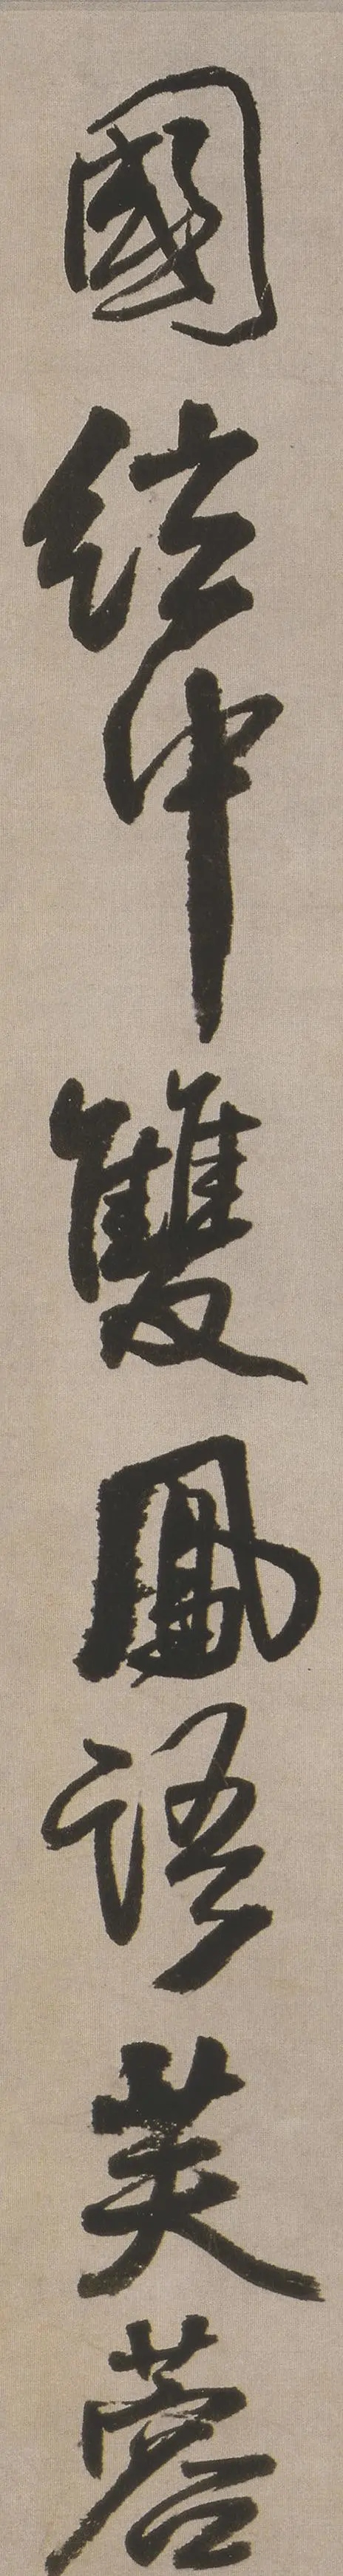 國結中雙鳳語芙蓉